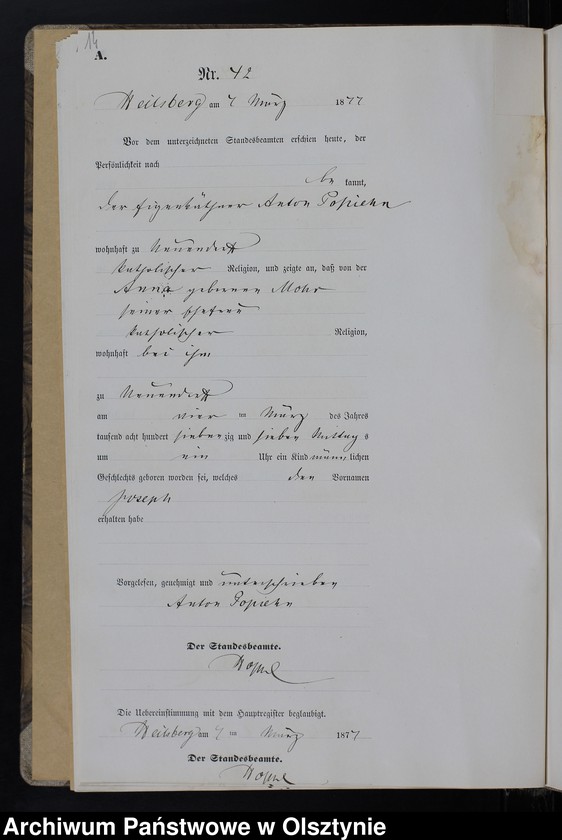 14
A.
Nr. 42
Heilsberg am 7 März 1877
Vor dem unterzeichneten Standesbeamten erschien heute, der
Persönlichkeit nach
be kannt,
der Eigenkäthner Anton Popiehn
wohnhaft zu Neuendorff
katholischer Religion, und zeigte an, daß von der
Anna geborenen Mohr
seiner Ehefrau
katholischer Religion,
wohnhaft bei ihm
zu Neuendorff
am vier ten März des Jahres
tausend acht hundert siebenzig und sieben Mittag s
um ein Uhr ein Kind männlichen
Geschlechts geboren worden sei, welches den Vornamen
Joseph
erhalten habe
Vorgelesen, genehmigt und unterschrieben
Anton Popiehn
Der Standesbeamte.
Die Uebereinstimmung mit dem Hauptregister beglaubigt.
Heilsberg am 7 ten März 1877
Der Standesbeamte.
Archiwum Państwowe w Olsztynie